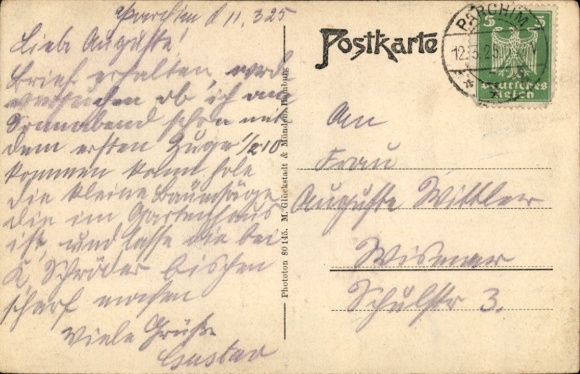 Parchim d 11.3.25
Liebe Auguste!
Brief erhalten, werde
versuchen ob ich am
Sonnabend schon mit
dem ersten Zuge 1/2 10
kommen kann, hole
die kleine Baumsäge
die im Gartenhaus
ist und lasse die bei
K. Schröder bischen
scharf machen
Viele Grüße
Gustav
Postkarte
PARCHIM
12.3.25
5 5
Deutsches
Reich
Phototon 80145. M. Glückstadt & Münden, Hamburg
An
Frau
Auguste Wittler
Wismar
Schulstr 3.